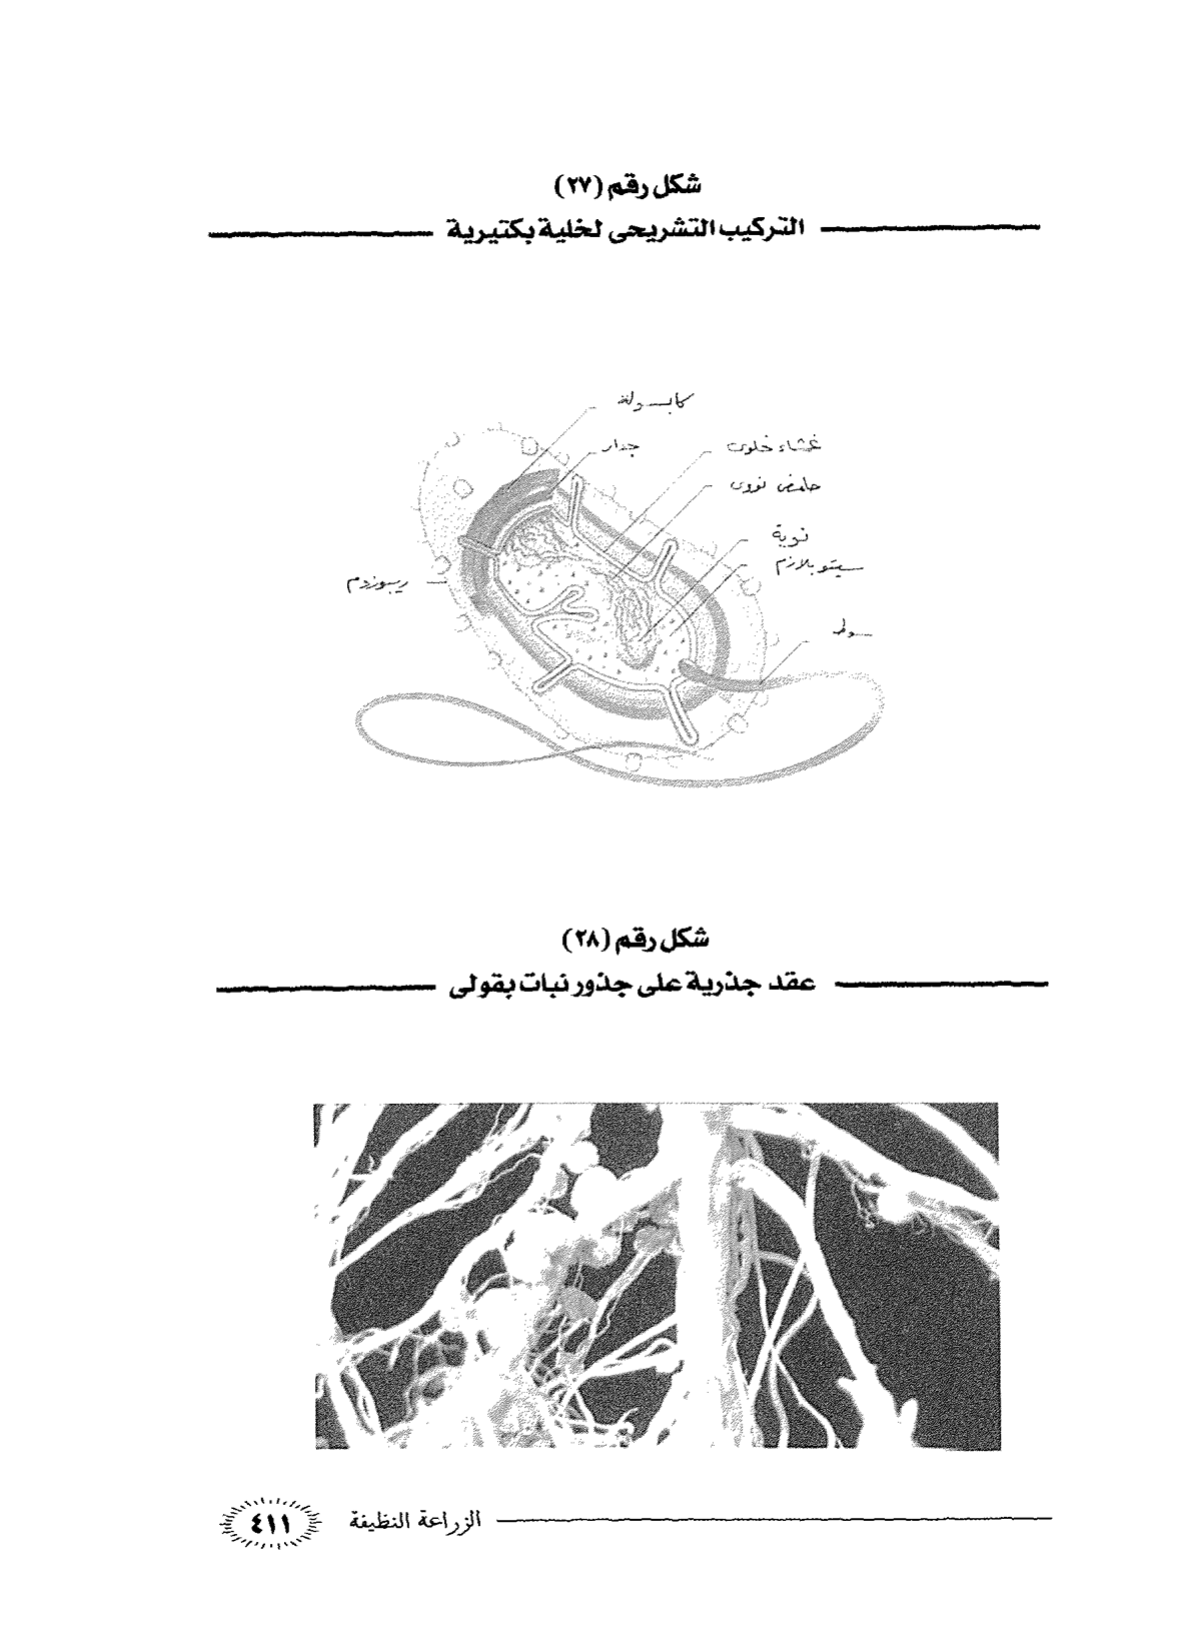 شكل رقم (٢٧)
التركيب التشريحى لخلية بكتيرية
كابسولة
جدار
غشاء خلوى
حامض نووى
نوية
سيتوبلازم
ريبوزوم
سوط
شكل رقم (٢٨)
عقد جذرية على جذور نبات بقولى
الزراعة النظيفة
٤١١